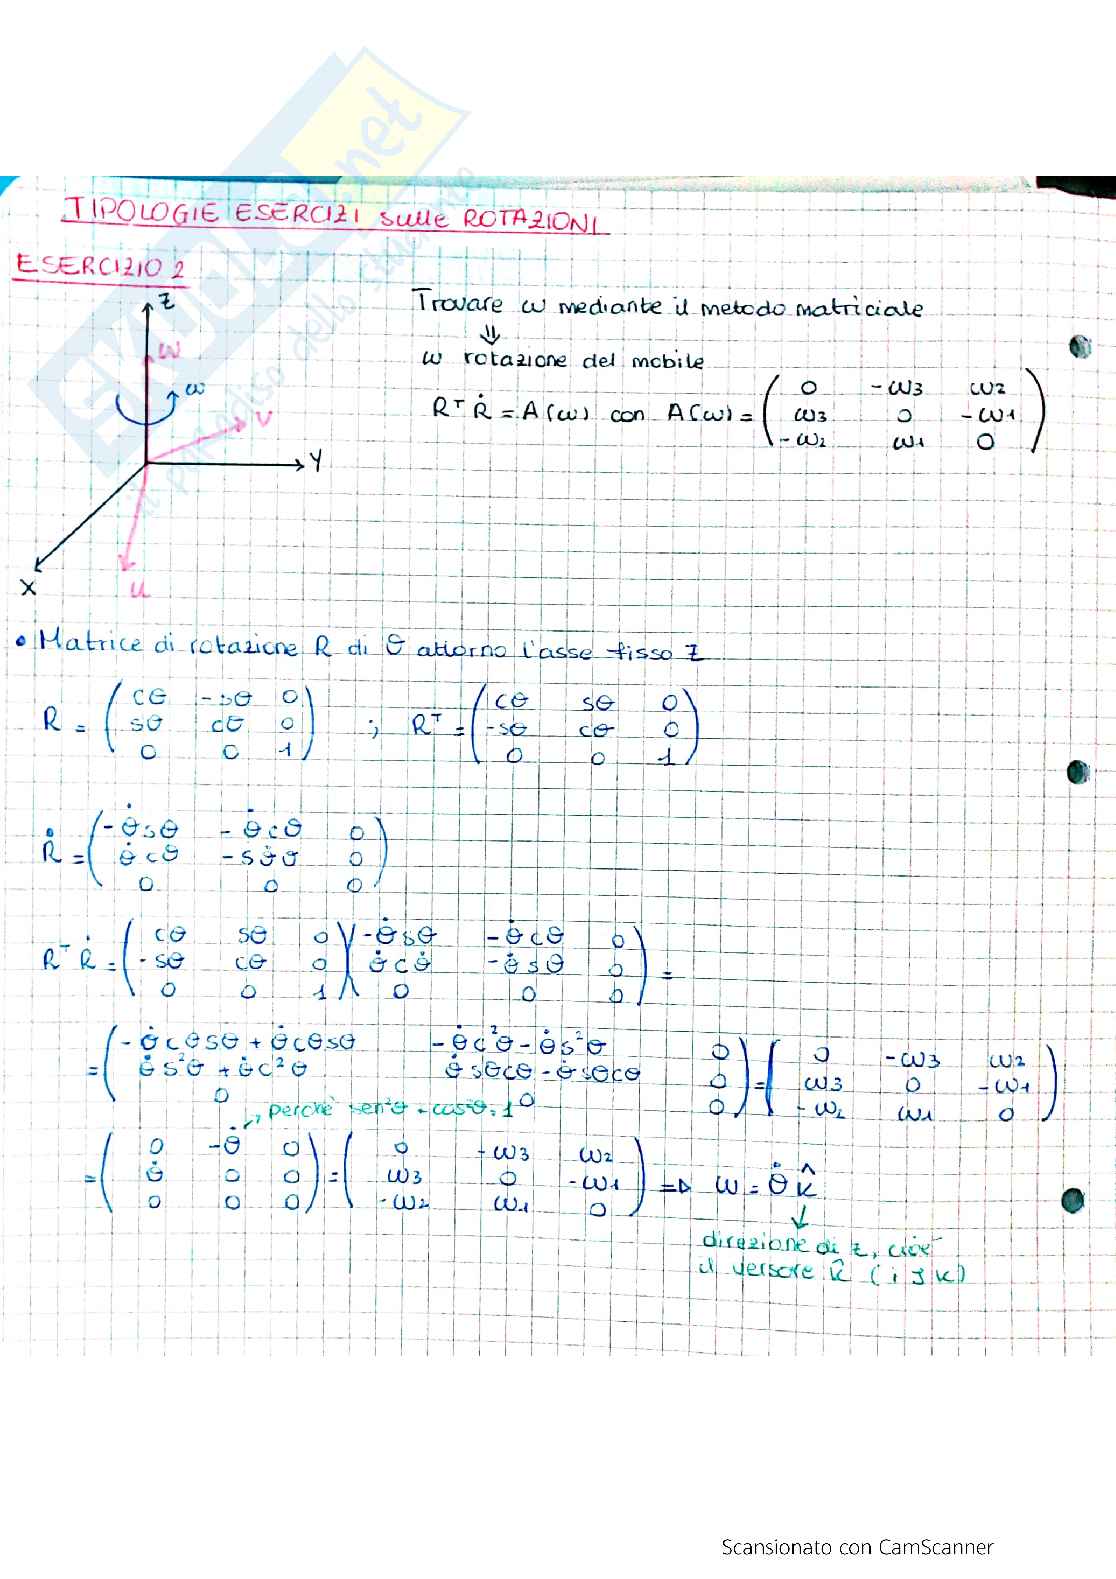 TIPOLOGIE ESERCIZI sulle ROTAZIONI
ESERCIZIO 2
Z
W
ω
V
Y
X
U
Trovare ω mediante il metodo matriciale
⇓
ω rotazione del mobile
Rᵀ Ṙ = A(ω) con A(ω) = ( 0 -ω3 ω2
ω3 0 -ω1
-ω2 ω1 0 )
• Matrice di rotazione R di θ attorno l'asse fisso Z
R = ( cθ -sθ 0
sθ cθ 0
0 0 1 ) ; Rᵀ = ( cθ sθ 0
-sθ cθ 0
0 0 1 )
Ṙ = ( -θ̇sθ -θ̇cθ 0
θ̇cθ -sθ̇θ 0
0 0 0 )
Rᵀ Ṙ = ( cθ sθ 0
-sθ cθ 0
0 0 1 ) ( -θ̇sθ -θ̇cθ 0
θ̇cθ̇ -θ̇sθ 0
0 0 0 ) =
= ( -θ̇cθsθ + θ̇cθsθ -θ̇c²θ - θ̇s²θ 0
θ̇s²θ + θ̇c²θ θ̇sθcθ - θ̇sθcθ 0
0 0 0 ) = ( 0 -ω3 ω2
ω3 0 -ω1
-ω2 ω1 0 )
perchè sen²θ + cos²θ = 1
= ( 0 -θ̇ 0
θ̇ 0 0
0 0 0 ) = ( 0 -ω3 ω2
ω3 0 -ω1
-ω2 ω1 0 ) ⇒ ω = θ̇ k̂
direzione di z, cioè
il versore k̂ (i J k)
Scansionato con CamScanner
SKUOLA.net
il paradiso dello studente